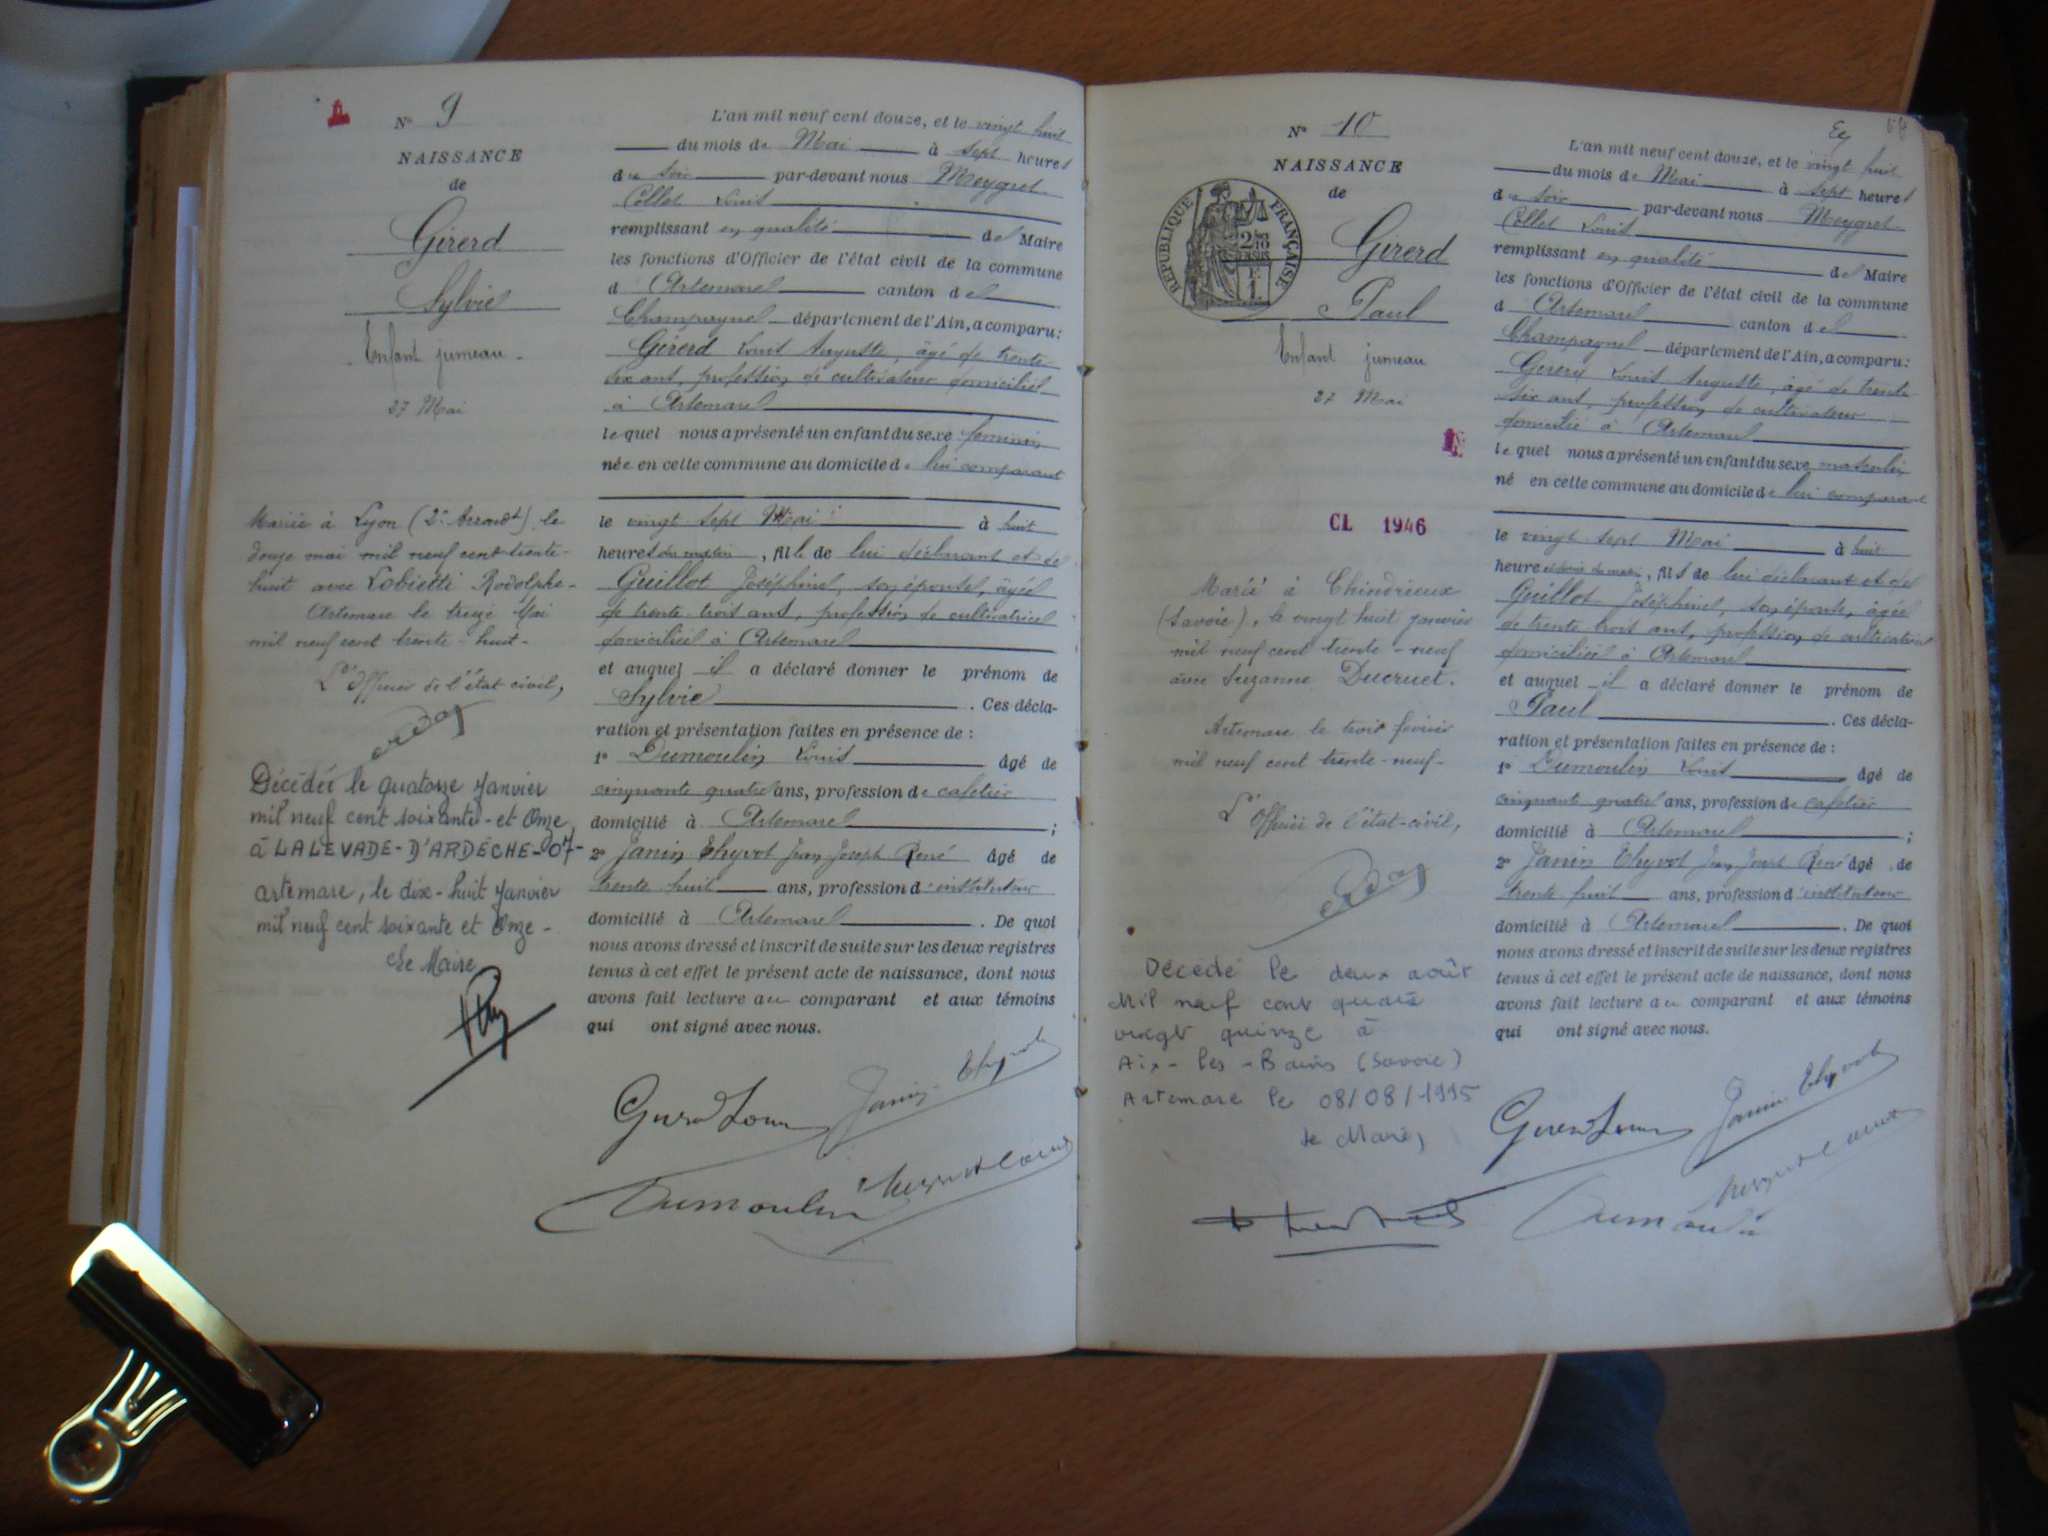 N° 9
NAISSANCE
de
Girerd
Sylvie
Enfant jumeau
27 Mai
Mariée à Lyon (2e Arrondt) le
douze mai mil neuf cent trente-
huit avec Lobietti Rodolphe-
Artemare le treize Mai
mil neuf cent trente-huit-
L'Officier de l'état civil,
Décédée le quatorze Janvier
mil neuf cent soixante-et Onze,
à LALEVADE-D'ARDÈCHE-07-
artemare, le dix-huit Janvier
mil neuf cent soixante et Onze-
Le Maire
L'an mil neuf cent douze, et le vingt huit
du mois de Mai à sept heures
du soir par-devant nous Meygret
Collet Louis
remplissant en qualité de Maire
les fonctions d'Officier de l'état civil de la commune
d'Artemare canton de
Champagne département de l'Ain, a comparu:
Girerd Louis Auguste, âgé de trente
six ans, profession de cultivateur domicilié
à Artemare
lequel nous a présenté un enfant du sexe féminin
née en cette commune au domicile de lui comparant
le vingt sept Mai à huit
heures du matin, fille de lui déclarant et de
Guillot Joséphine, son épouse, âgée
de trente trois ans, profession de cultivatrice
domiciliée à Artemare
et auquel il a déclaré donner le prénom de
Sylvie. Ces décla-
ration et présentation faites en présence de :
1° Dumoulin Louis âgé de
cinquante quatre ans, profession de cafetier
domicilié à Artemare ;
2° Janin Thyvot Jean Joseph René âgé de
trente huit ans, profession d'instituteur
domicilié à Artemare. De quoi
nous avons dressé et inscrit de suite sur les deux registres
tenus à cet effet le présent acte de naissance, dont nous
avons fait lecture au comparant et aux témoins
qui ont signé avec nous.
Girerd Louis
Janin Thyvot
Dumoulin
Meygret Collet
N° 10
NAISSANCE
de
RÉPUBLIQUE FRANÇAISE
Girerd
Paul
Enfant jumeau
27 Mai
CL 1946
Marié à Chindrieux
(Savoie), le vingt huit janvier
mil neuf cent trente-neuf
avec Suzanne Ducruet.
Artemare le trois février
mil neuf cent trente-neuf-
L'Officier de l'état-civil,
Décédé le deux août
Mil neuf cent quatre
vingt quinze à
Aix-les-Bains (Savoie)
Artemare le 08/08/1995
le Maire,
L'an mil neuf cent douze, et le vingt huit
du mois de Mai à sept heures
du soir par-devant nous Meygret
Collet Louis
remplissant en qualité de Maire
les fonctions d'Officier de l'état civil de la commune
d'Artemare canton de
Champagne département de l'Ain, a comparu:
Girerd Louis Auguste, âgé de trente
six ans, profession de cultivateur
domicilié à Artemare
lequel nous a présenté un enfant du sexe masculin
né en cette commune au domicile de lui comparant
le vingt sept Mai à huit
heures du matin, fils de lui déclarant et de
Guillot Joséphine, son épouse, âgée
de trente trois ans, profession de cultivatrice
domiciliée à Artemare
et auquel il a déclaré donner le prénom de
Paul. Ces décla-
ration et présentation faites en présence de :
1° Dumoulin Louis âgé de
cinquante quatre ans, profession de cafetier
domicilié à Artemare ;
2° Janin Thyvot Jean Joseph René âgé de
trente huit ans, profession d'instituteur
domicilié à Artemare. De quoi
nous avons dressé et inscrit de suite sur les deux registres
tenus à cet effet le présent acte de naissance, dont nous
avons fait lecture au comparant et aux témoins
qui ont signé avec nous.
Girerd Louis
Janin Thyvot
Meygret Collet
Dumoulin